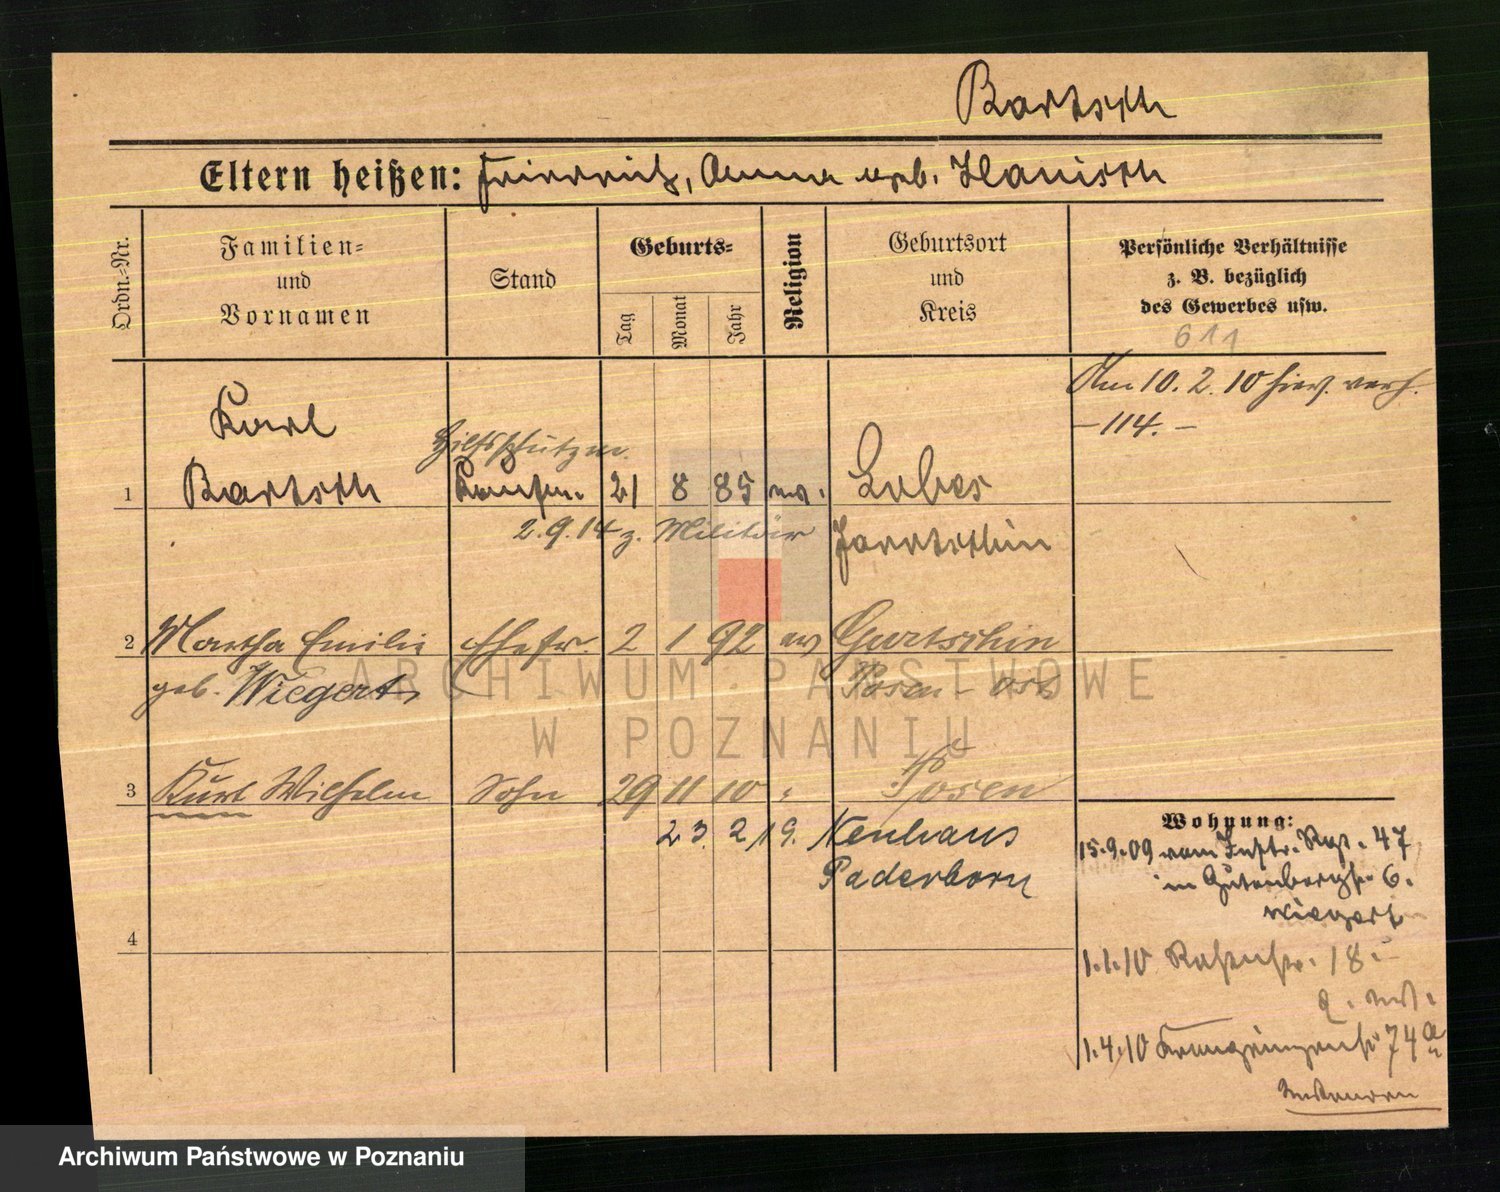 Bartsch
Eltern heißen: Friedrich, Anna geb. Hanisch
Ordn.-Nr.
Familien-
und
Vornamen
Stand
Geburts-
Tag
Monat
Jahr
Religion
Geburtsort
und
Kreis
Persönliche Verhältnisse
z. B. bezüglich
des Gewerbes usw.
611
Am 10. 2. 10 hier verh.
- 114. -
Karl
Hilfsschutzm.
1 Bartsch 21 8 85 ev.
2.9.14 z. Militär Jarotschin
2 Martha Emilie Ehefr. 2 1 92 ev Gurtschin
geb. Wiegert, Posen - Ost
3 Kurt Wilhelm Sohn 29 11 10 " Posen
23. 2 19. Neuhaus
Paderborn
4
Wohnung:
15.9.09 vom Inftr. Rgt. 47
in Gutenbergstr 6.
Wiegert
1.1.10 18
1.4.10 74a
ARCHIWUM PAŃSTWOWE
W POZNANIU
Archiwum Państwowe w Poznaniu